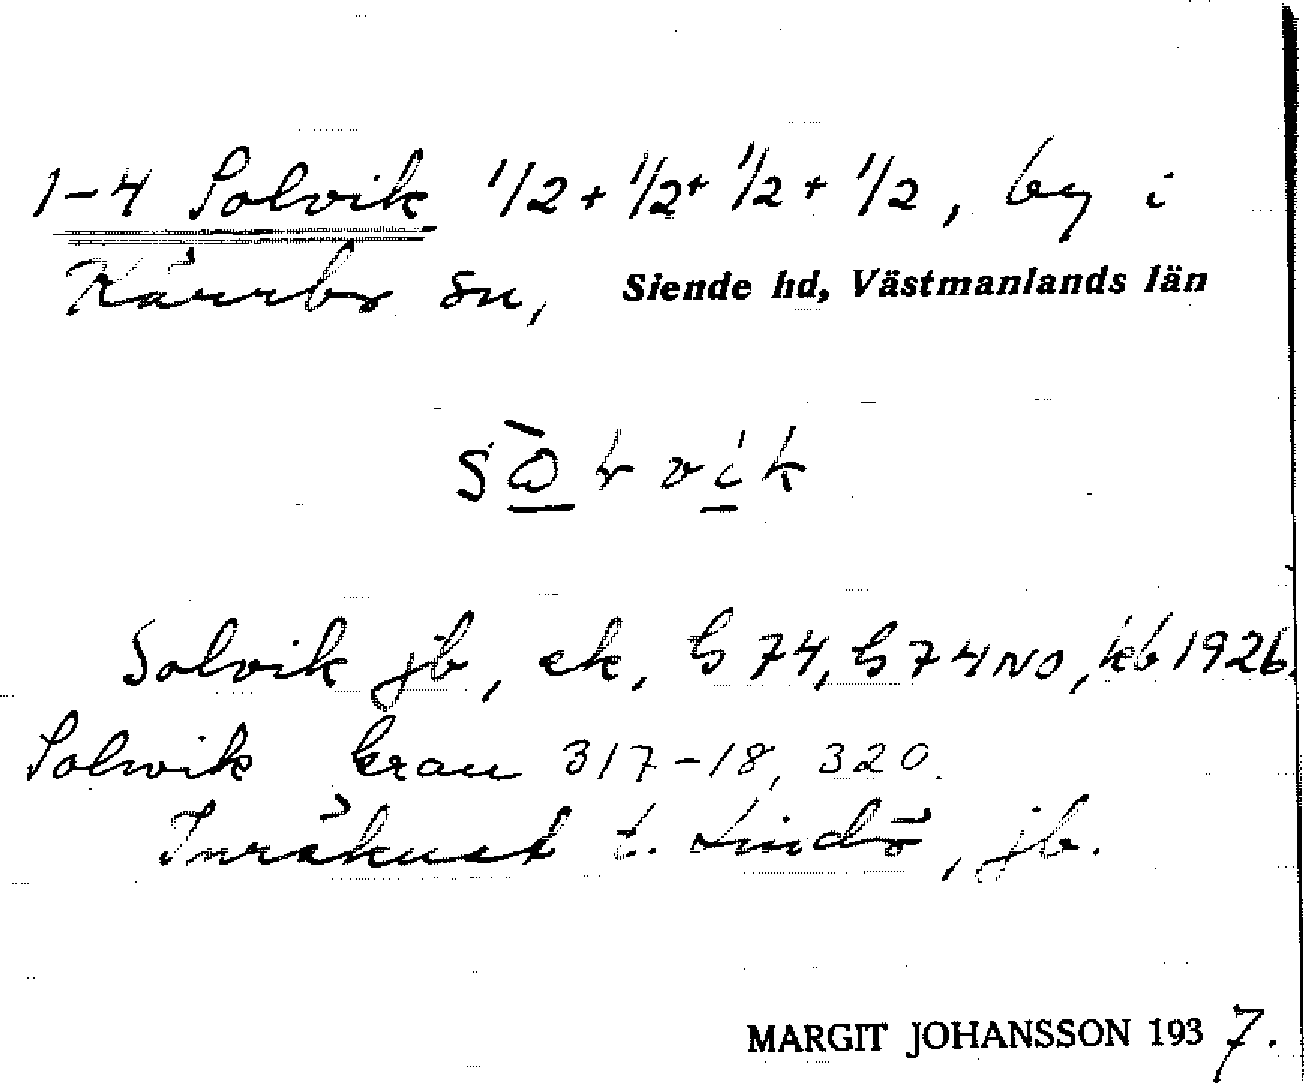 1-4 Solvik 1/2 + 1/2 + 1/2 + 1/2, by i
Kärrbo sn, Siende hd, Västmanlands län
Solvik jb, ek, G 74, G 74 NO, kb 1926.
Solwik kran 317-18, 320.
Inräknat t. Lindö, jb.
MARGIT JOHANSSON 1937.